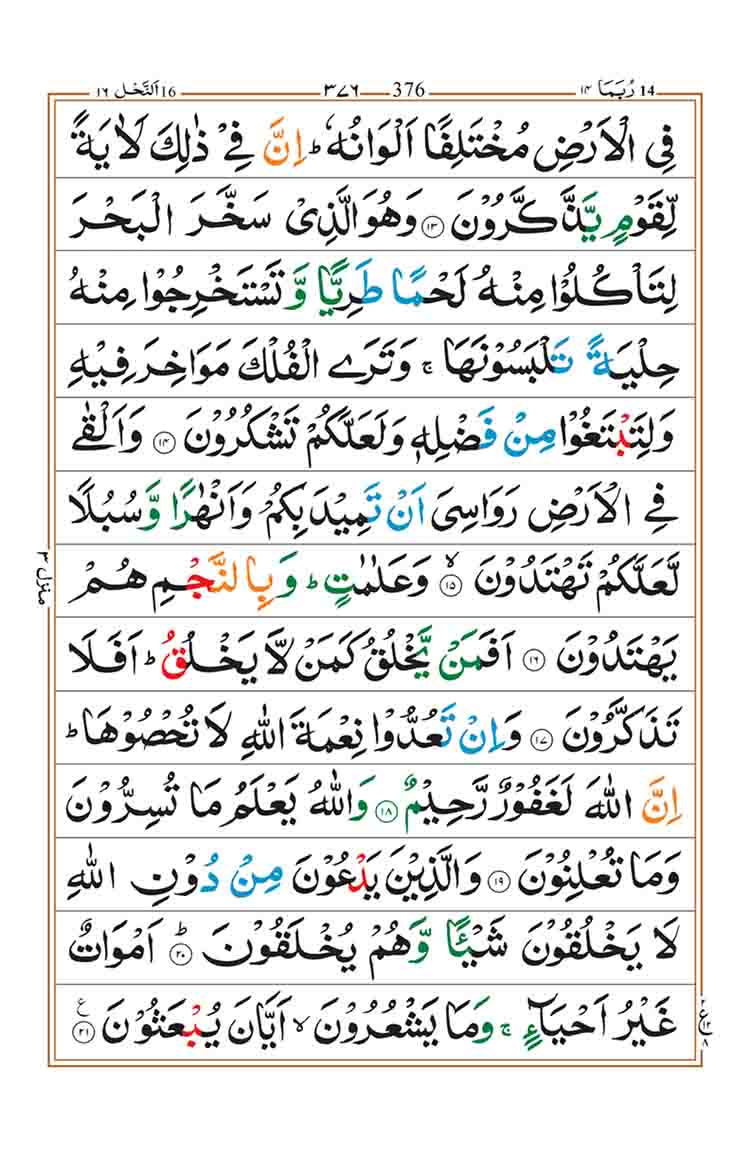 14 رُبَمَا ١٤
376 ٣٧٦
16 اَلنَّحْل ١٦
فِى الْاَرْضِ مُخْتَلِفًا اَلْوَانُهٗ ؕ اِنَّ فِىْ ذٰلِكَ لَاٰيَةً
لِّقَوْمٍ يَّذَّكَّرُوْنَ ۝١٣ وَهُوَ الَّذِىْ سَخَّرَ الْبَحْرَ
لِتَاْكُلُوْا مِنْهُ لَحْمًا طَرِيًّا وَّ تَسْتَخْرِجُوْا مِنْهُ
حِلْيَةً تَلْبَسُوْنَهَا ۚ وَتَرَے الْفُلْكَ مَوَاخِرَ فِيْهِ
وَلِتَبْتَغُوْا مِنْ فَضْلِهٖ وَلَعَلَّكُمْ تَشْكُرُوْنَ ۝١٤ وَاَلْقٰے
فِے الْاَرْضِ رَوَاسِىَ اَنْ تَمِيْدَ بِكُمْ وَاَنْهٰرًا وَّ سُبُلًا
لَّعَلَّكُمْ تَهْتَدُوْنَ ۙ۝١٥ وَعَلٰمٰتٍ ؕ وَبِالنَّجْمِ هُمْ
يَهْتَدُوْنَ ۝١٦ اَفَمَنْ يَّخْلُقُ كَمَنْ لَّا يَخْلُقُ ؕ اَفَلَا
تَذَكَّرُوْنَ ۝١٧ وَاِنْ تَعُدُّوْا نِعْمَةَ اللّٰهِ لَا تُحْصُوْهَا ؕ
اِنَّ اللّٰهَ لَغَفُوْرٌ رَّحِيْمٌ ۝١٨ وَاللّٰهُ يَعْلَمُ مَا تُسِرُّوْنَ
وَمَا تُعْلِنُوْنَ ۝١٩ وَالَّذِيْنَ يَدْعُوْنَ مِنْ دُوْنِ اللّٰهِ
لَا يَخْلُقُوْنَ شَيْـًٔا وَّهُمْ يُخْلَقُوْنَ ؕ۝٢٠ اَمْوَاتٌ
غَيْرُ اَحْيَآءٍ ۚ وَمَا يَشْعُرُوْنَ ۙ اَيَّانَ يُبْعَثُوْنَ ۝٢١ ع
منزل ٣
ع ٢ ١٢ ٨